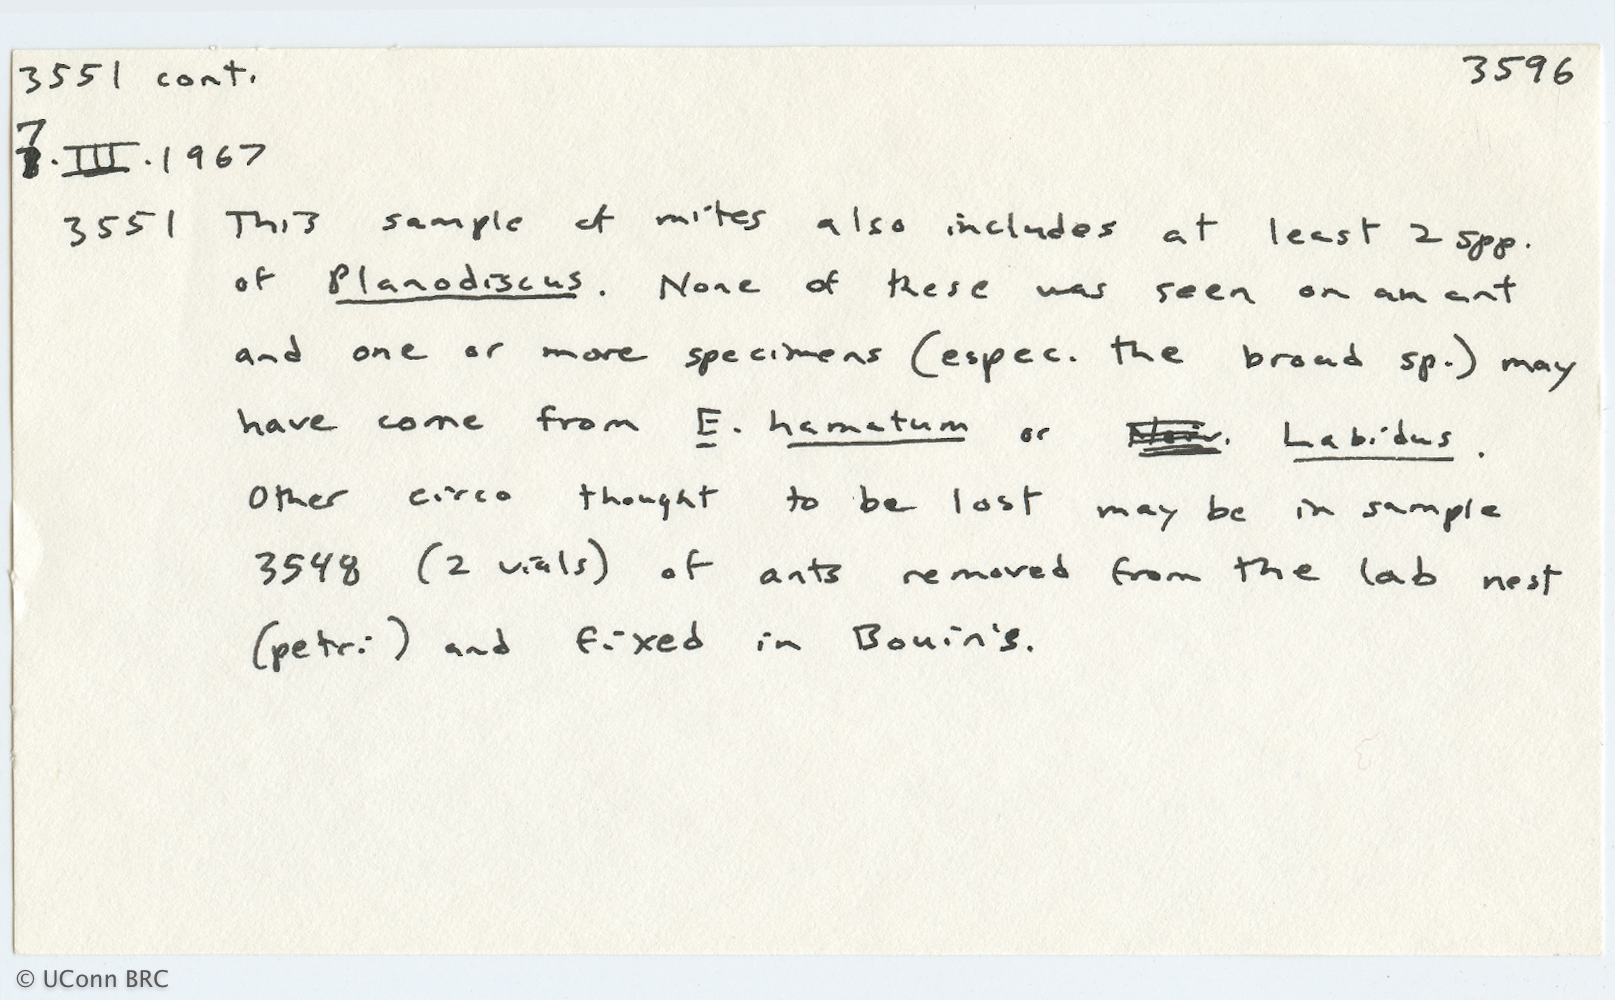 3551 cont. 3596
7.III.1967
3551 This sample of mites also includes at least 2 spp.
of Planodiscus. None of these was seen on an ant
and one or more specimens (espec. the broad sp.) may
have come from E. hamatum or Labidus.
Other circo thought to be lost may be in sample
3548 (2 vials) of ants removed from the lab nest
(petri) and fixed in Bouin's.
© UConn BRC